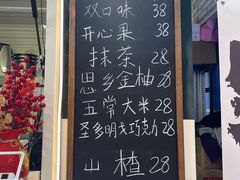 双口味 38
开心果 38
抹茶 28
思乡金柚 28
五常大米 28
圣多明戈巧克力 28
山楂 28